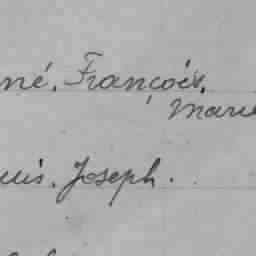 né. François,
Marie
uis. Joseph.